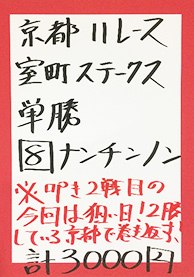 京都11レース
室町ステークス
単勝
8 ナンチンノン
※叩き2戦目の
今回は狙い目！2勝
している京都で巻き返す！
計3000円